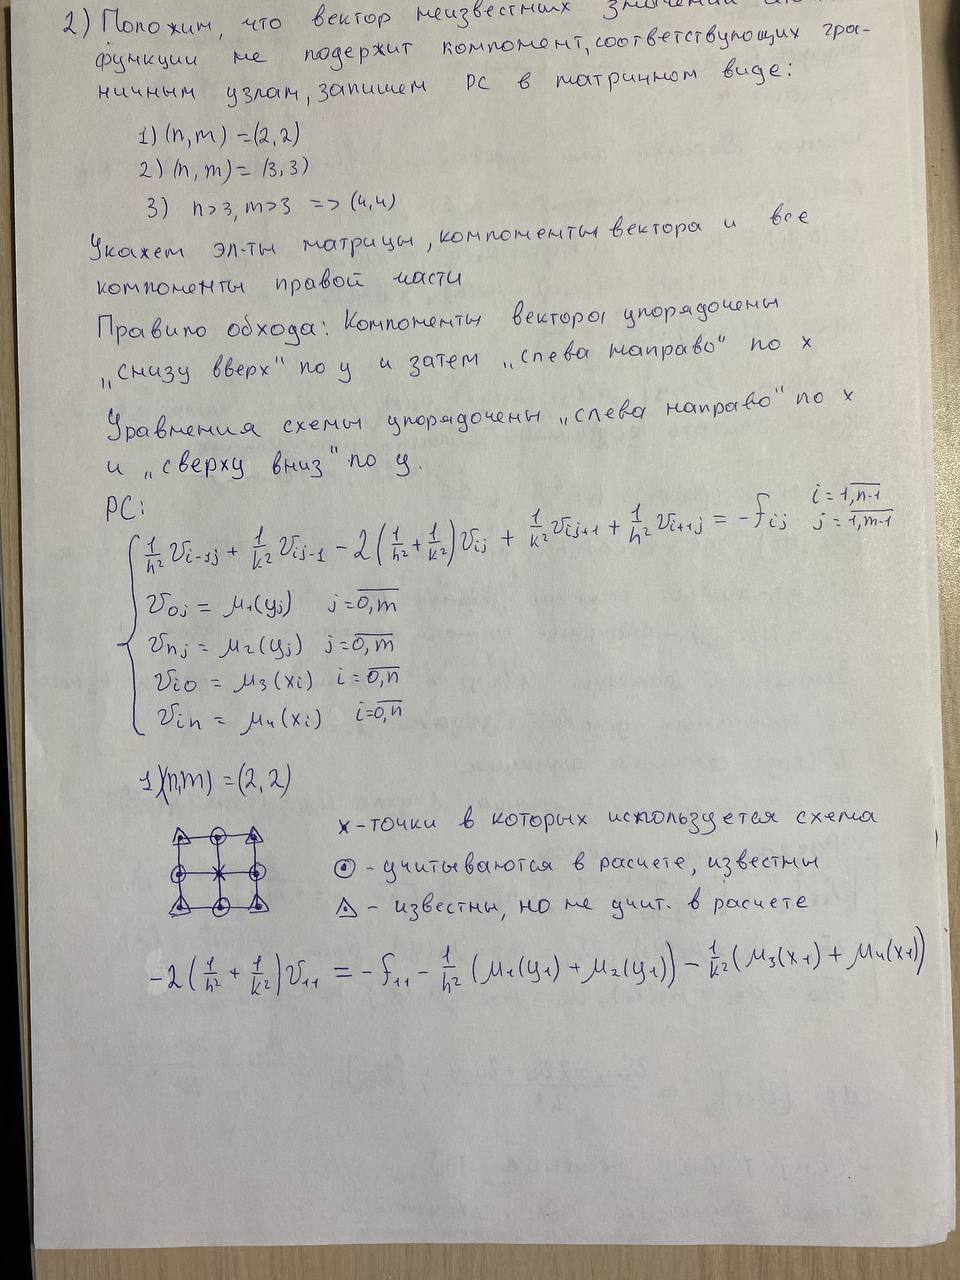 2) Положим, что вектор неизвестных
функции не содержит компонент, соответствующих гра-
ничным узлам, запишем РС в матричном виде:
1) (n, m) = (2, 2)
2) (n, m) = (3, 3)
3) n>3, m>3 => (4,4)
Укажем эл-ты матрицы, компоненты вектора и все
компоненты правой части
Правило обхода: Компоненты вектора упорядочены
„снизу вверх" по y и затем „слева направо" по x
Уравнения схемы упорядочены „слева направо" по x
и „сверху вниз" по y.
РС:
1/h² v_{i-1j} + 1/k² v_{ij-1} - 2(1/h² + 1/k²) v_{ij} + 1/k² v_{ij+1} + 1/h² v_{i+1j} = -f_{ij} i = \overline{1,n-1} j = \overline{1,m-1}
v_{0j} = μ₁(y_j) j = \overline{0,m}
v_{nj} = μ₂(y_j) j = \overline{0,m}
v_{i0} = μ₃(x_i) i = \overline{0,n}
v_{in} = μ₄(x_i) i = \overline{0,n}
1)(n,m) = (2, 2)
x - точки в которых используется схема
⊙ - учитываются в расчете, известны
◬ - известны, но не учит. в расчете
-2(1/h² + 1/k²) v₁₁ = -f₁₁ - 1/h² (μ₁(y₁) + μ₂(y₁)) - 1/k² (μ₃(x₁) + μ₄(x₁))